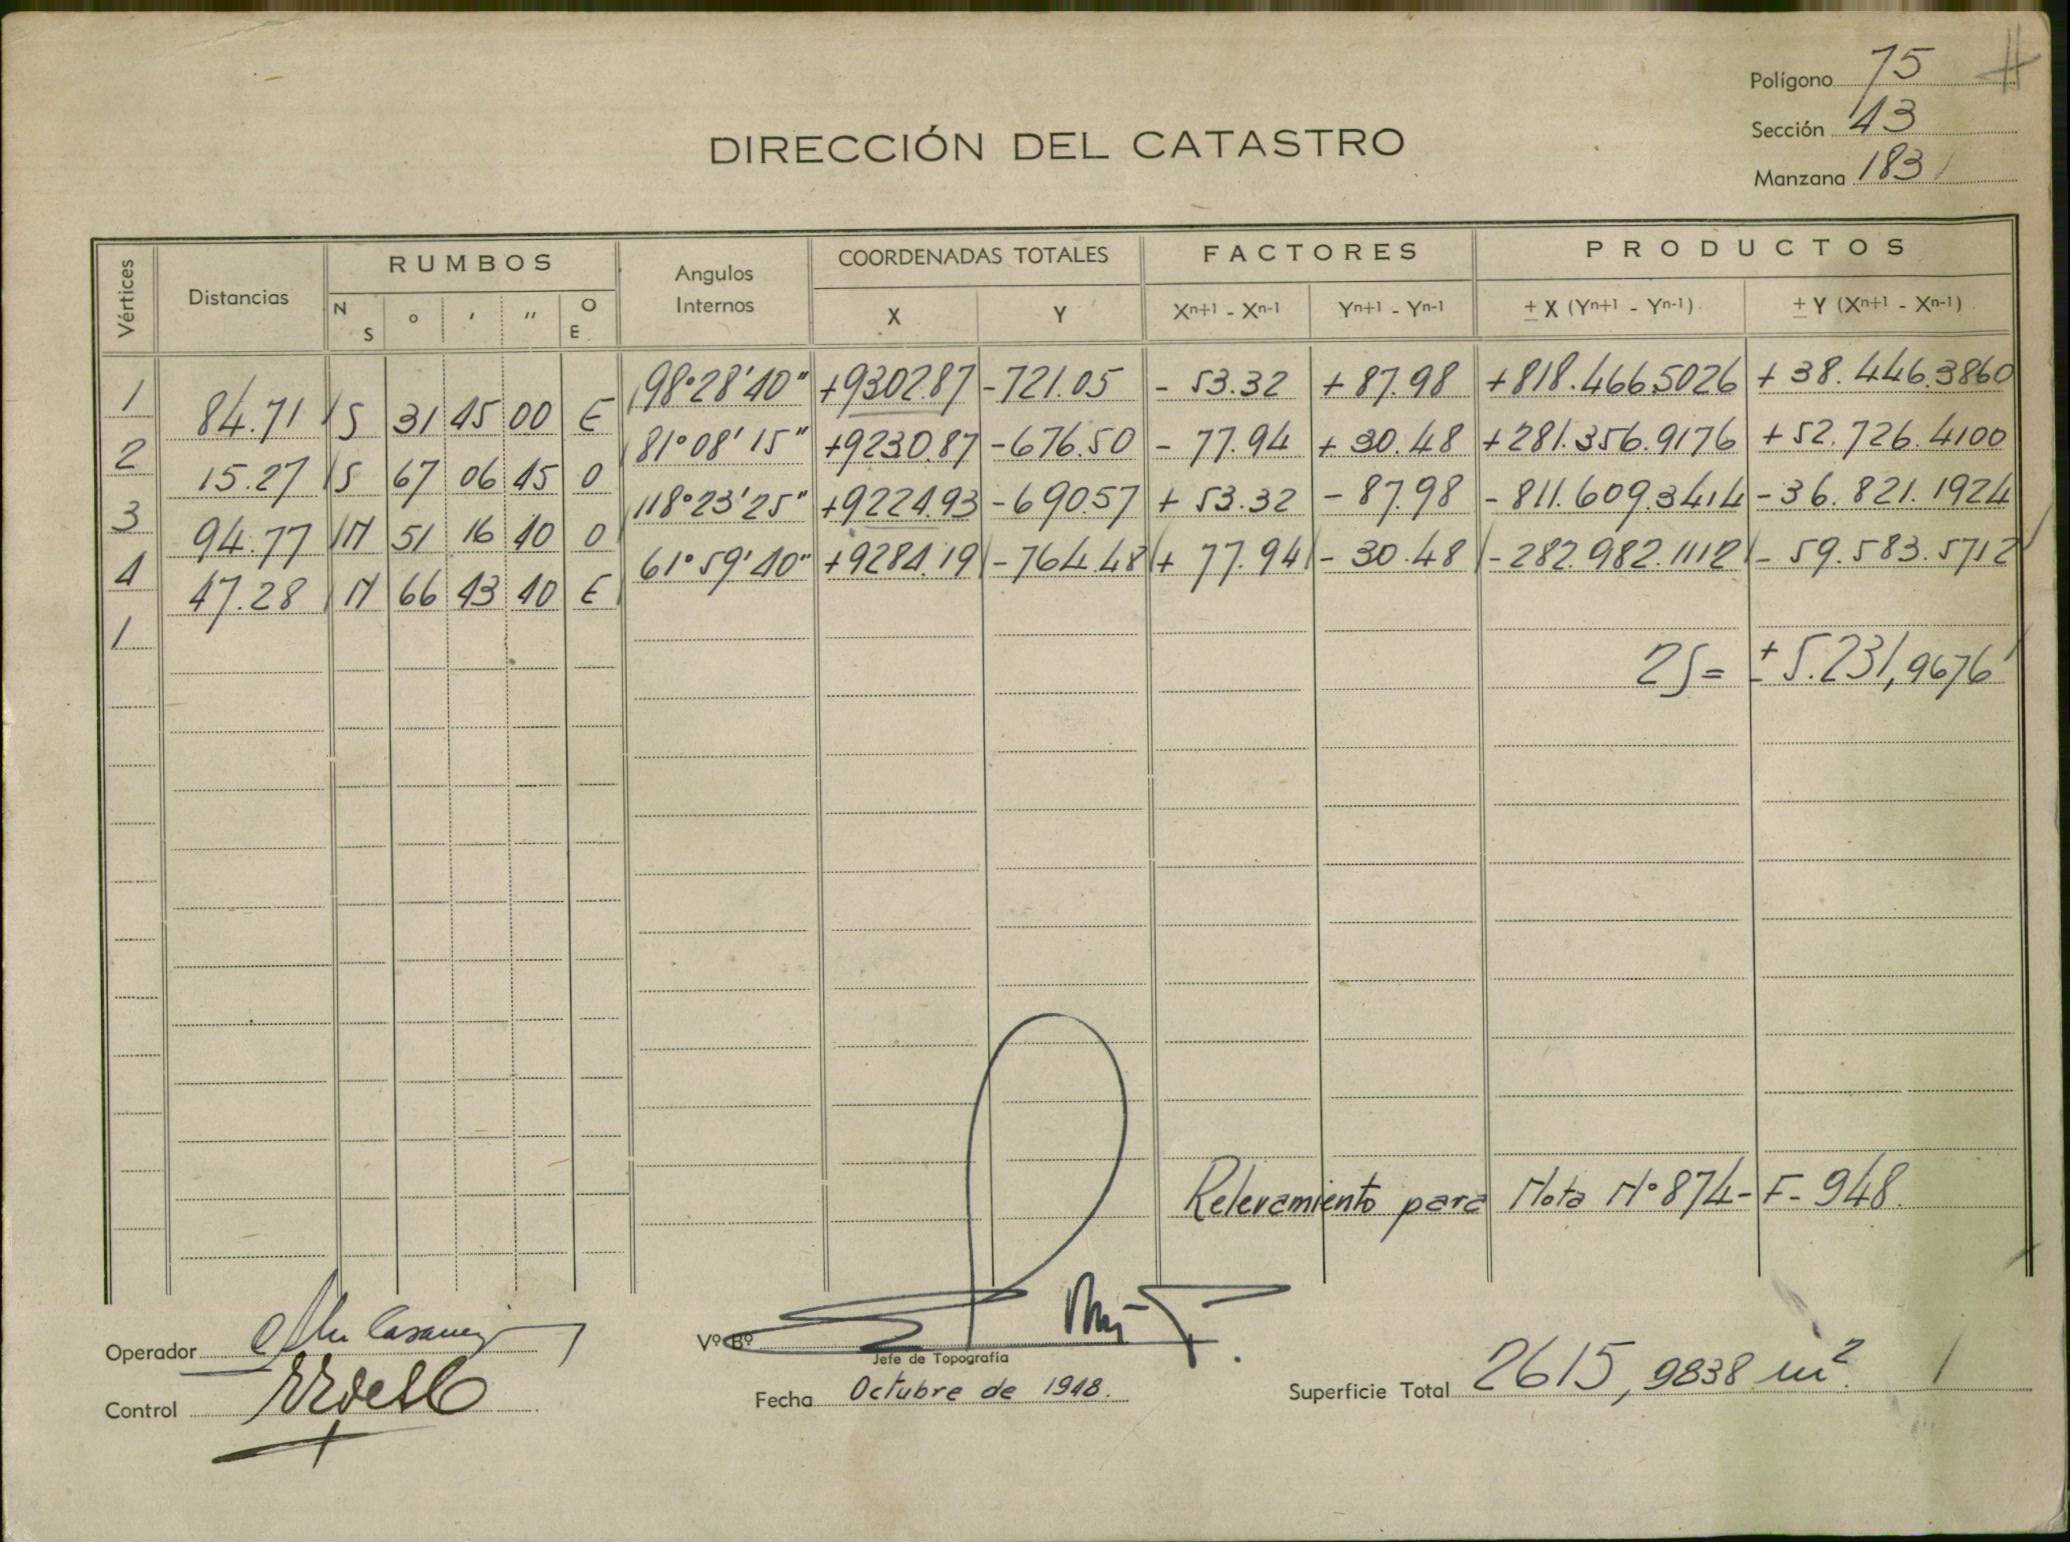 Polígono 75
Sección 43
Manzana 183
DIRECCIÓN DEL CATASTRO
Vértices Distancias RUMBOS Angulos Internos COORDENADAS TOTALES FACTORES PRODUCTOS
N S ° ' " O E X Y Xn+1 - Xn-1 Yn+1 - Yn-1 ± X (Yn+1 - Yn-1) ± Y (Xn+1 - Xn-1)
1 98°28'40" +9302.87 -721.05 - 53.32 + 87.98 +818.466.5026 + 38.446.3860
84.71 S 31 45 00 E
2 81°08'15" +9230.87 -676.50 - 77.94 + 30.48 +281.356.9176 + 52.726.4100
15.27 S 67 06 45 O
3 118°23'25" +9224.93 -690.57 + 53.32 - 87.98 -811.609.3414 -36.821.1924
94.77 N 51 16 40 O
4 61°59'40" +9284.19 -764.48 + 77.94 - 30.48 -282.982.1112 - 59.583.5712
47.28 N 66 43 40 E
1
2S= ± 5.231,9676
Relevamiento para Nota N° 874-F-948.
Operador
Vº Bº
Jefe de Topografía
Control
Fecha Octubre de 1948.
Superficie Total 2615,9838 m².